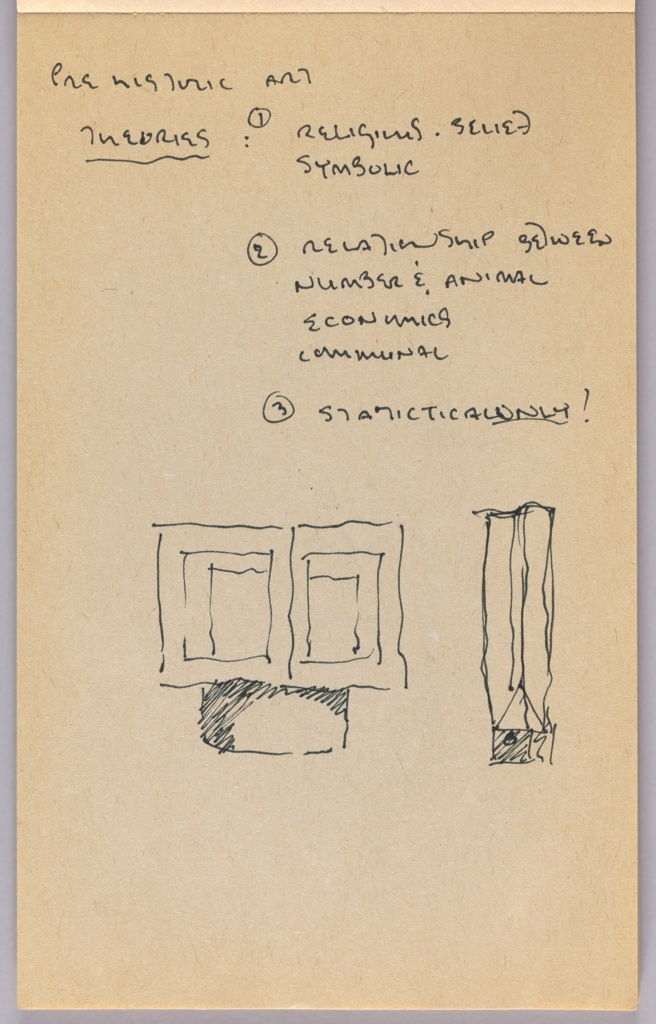 PREHISTORIC ART
THEORIES : ① RELIGIOUS. BELIEF
SYMBOLIC
② RELATIONSHIP BETWEEN
NUMBER & ANIMAL
ECONOMICS
COMMUNAL
③ STATICTICAL ONLY!